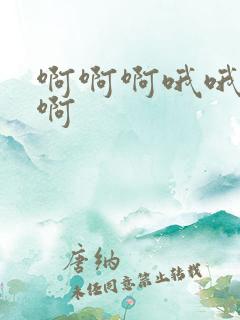 啊啊啊哦哦
啊
唐纳
未经同意禁止转载